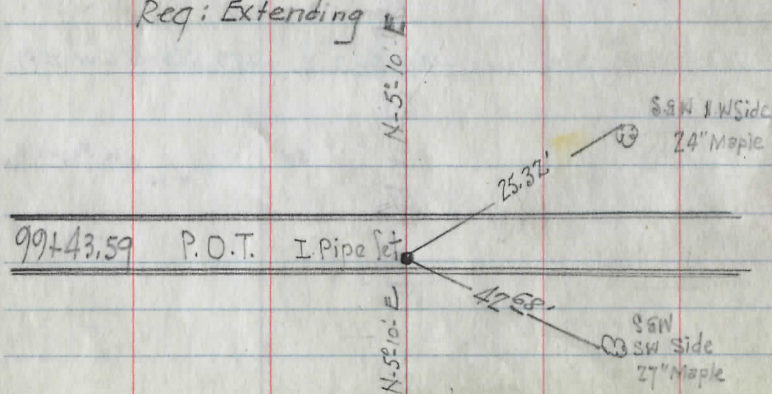 Req: Extending
N-5°10' E
S&W N.W Side
24" Maple
25.32'
99+43.59 P.O.T. I. Pipe Set
42.68'
N-5°10' E
S&W
SW Side
27" Maple